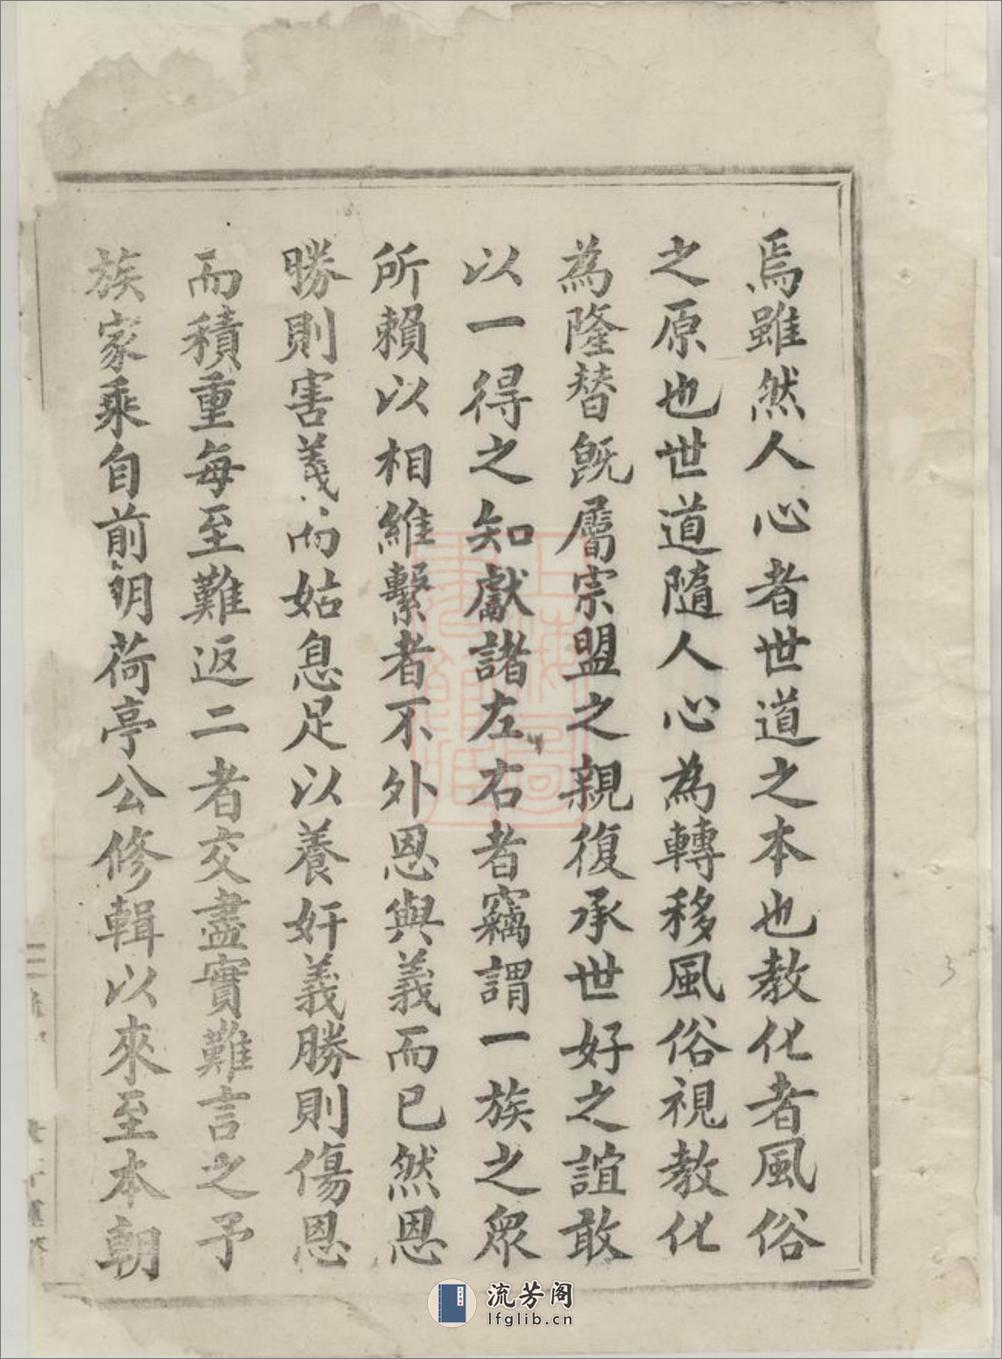 焉雖然人心者世道之本也教化者風俗
之原也世道隨人心為轉移風俗視教化
為隆替旣屬宗盟之親復承世好之誼敢
以一得之知獻諸左右者竊謂一族之眾
所賴以相維繫者不外恩與義而已然恩
勝則害義而姑息足以養奸義勝則傷恩
而積重每至難返二者交盡實難言之予
族家乘自前明荷亭公修輯以來至本朝
流芳阁
lfglib.cn
3